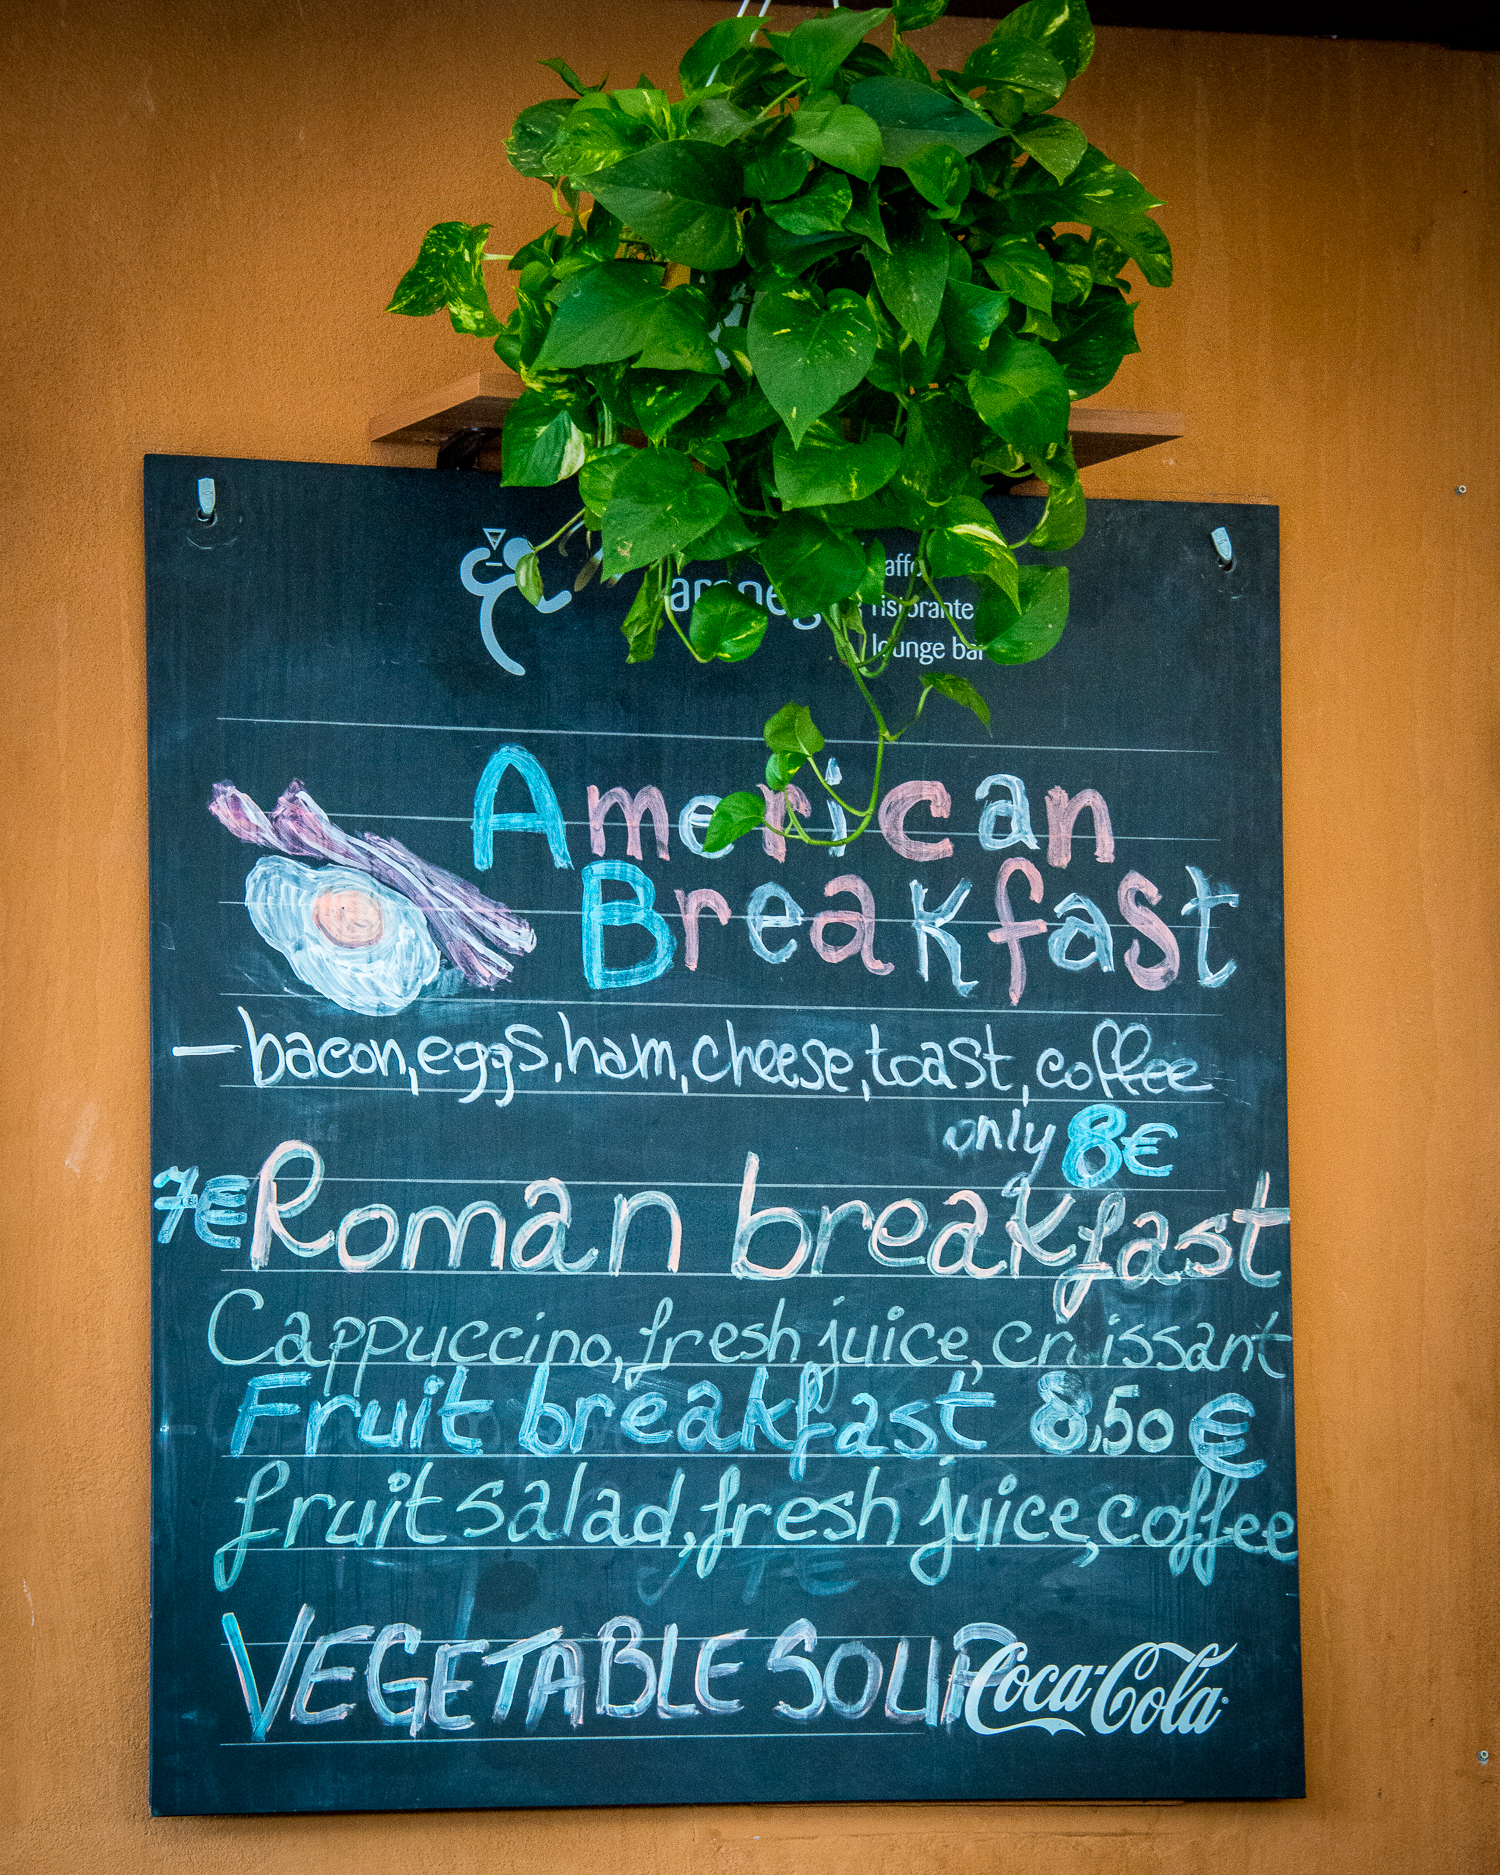 ristorante
lounge bar
American
Breakfast
– bacon, eggs, ham, cheese, toast, coffee
only 8€
7€ Roman breakfast
Cappuccino, fresh juice, croissant
Fruit breakfast 8,50 €
fruit salad, fresh juice, coffee
VEGETABLE SOUP Coca-Cola